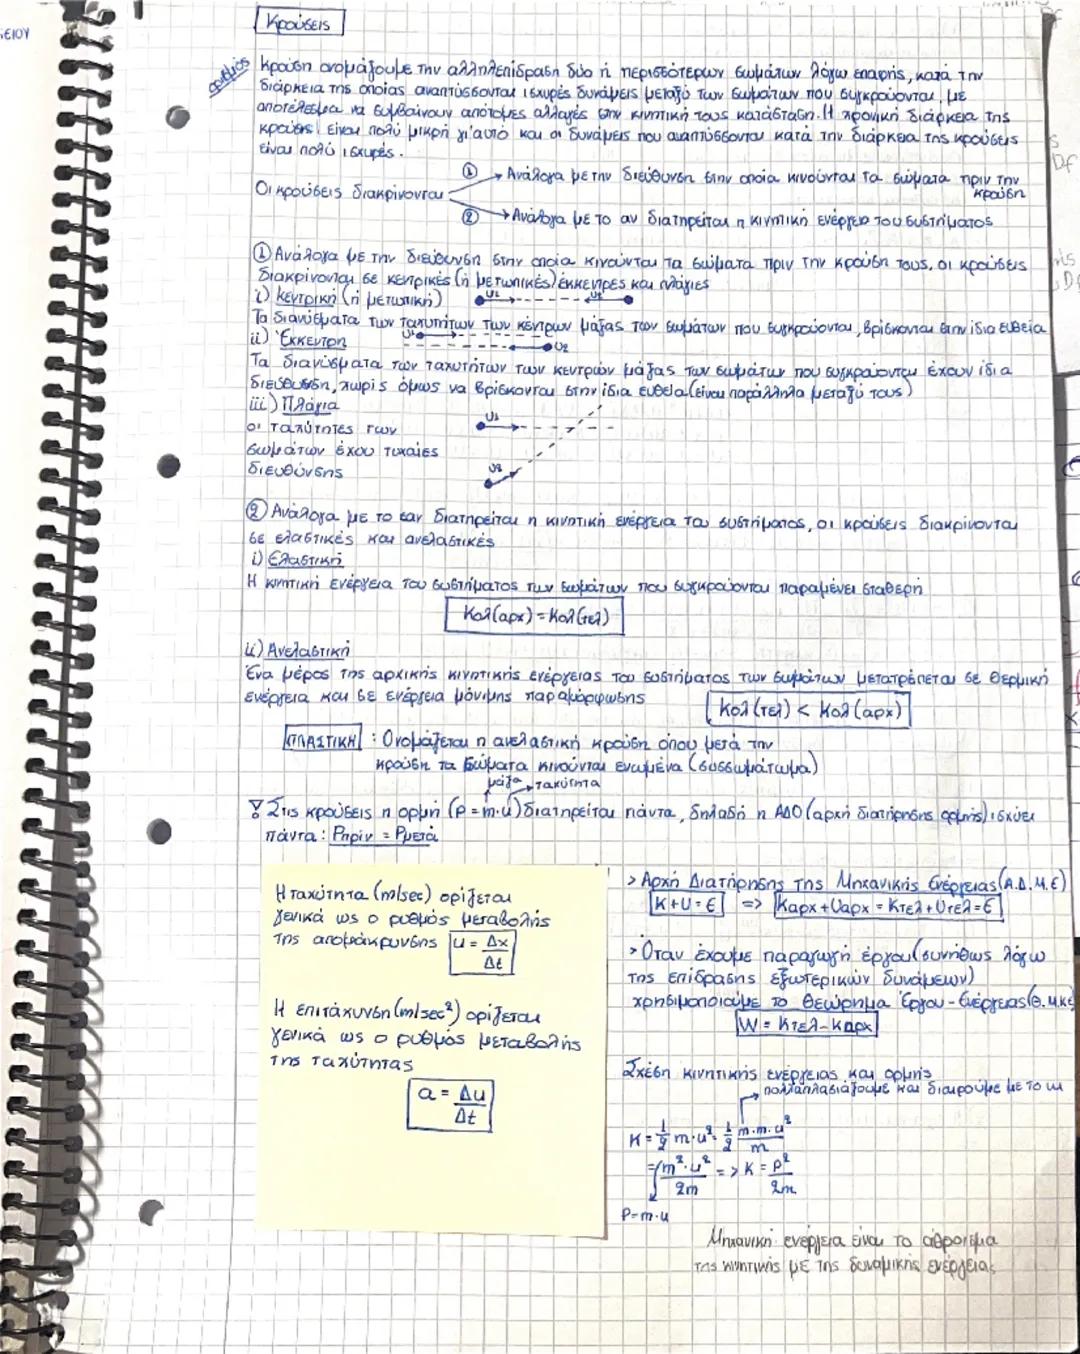 Κρούσεις
ορισμός
Κρούση ονομάζουμε την αλληλεπίδραση δύο ή περισσότερων σωμάτων λόγω επαφής, κατά την
διάρκεια της οποίας αναπτύσσονται ισχυρές δυνάμεις μεταξύ των σωμάτων που συγκρούονται, με
αποτέλεσμα να συμβαίνουν απότομες αλλαγές στην κινητική τους κατάσταση. Η χρονική διάρκεια της
κρούσης είναι πολύ μικρή γι'αυτό και οι δυνάμεις που αναπτύσσονται κατά την διάρκεια της κρούσεις
είναι πολύ ισχυρές.
Οι κρούσεις διακρίνονται
① → Ανάλογα με την διεύθυνση στην οποία κινούνται τα σώματα πριν την
κρούση
② → Ανάλογα με το αν διατηρείται η κινητική ενέργεια του συστήματος
① Ανάλογα με την διεύθυνση στην οποία κινούνται τα σώματα πριν την κρούση τους, οι κρούσεις
διακρίνονται σε κεντρικές (ή μετωπικές) έκκεντρες και πλάγιες
i) κεντρική (ή μετωπική) υ1 υ2
Τα διανύσματα των ταχυτήτων των κέντρων μάζας των σωμάτων που συγκρούονται, βρίσκονται στην ίδια ευθεία
ii) Έκκεντρη υ1 υ2
Τα διανύσματα των ταχυτήτων των κεντρών μάζας των σωμάτων που συγκρούονται έχουν ίδια
διεύθυνση, χωρίς όμως να βρίσκονται στην ίδια ευθεία (είναι παράλληλα μεταξύ τους)
iii) Πλάγια
οι ταχύτητες των υ1
σωμάτων έχου τυχαίες
διευθύνσης υ2
② Ανάλογα με το εαν διατηρείται η κινητική ενέργεια του συστήματος, οι κρούσεις διακρίνονται
σε ελαστικές και ανελαστικές
i) Ελαστική
Η κινητική ενέργεια του συστήματος των σωμάτων που συγκρούονται παραμένει σταθερή
Κολ(αρχ) = Κολ(τελ)
ii) Ανελαστική
Ένα μέρος της αρχικής κινητικής ενέργειας του συστήματος των σωμάτων μετατρέπεται σε θερμική
ενέργεια και σε ενέργεια μόνιμης παραμόρφωσης
Κολ(τελ) < Κολ(αρχ)
ΠΛΑΣΤΙΚΗ : Ονομάζεται η ανελαστική κρούση όπου μετά την
κρούση τα σώματα κινούνται ενωμένα (συσσωμάτωμα)
μάζα ταχύτητα
Στις κρούσεις η ορμή (p = m·u) διατηρείται πάντα, δηλαδή η ΑΔΟ (αρχή διατήρησης ορμής) ισχύει
πάντα: Pπριν = Pμετά
Η ταχύτητα (m/sec) ορίζεται
γενικά ως ο ρυθμός μεταβολής
της απομάκρυνσης u = Δx/Δt
Η επιτάχυνση (m/sec²) ορίζεται
γενικά ως ο ρυθμός μεταβολής
της ταχύτητας
a = Δu/Δt
> Αρχή Διατήρησης της Μηχανικής Ενέργειας (Α.Δ.Μ.Ε)
K+U=E => Kαρχ+Uαρχ = Kτελ+Uτελ=E
> Όταν έχουμε παραγωγή έργου (συνήθως λόγω
της επίδρασης εξωτερικών δυνάμεων)
χρησιμοποιούμε το Θεώρημα Έργου-Ενέργειας (Θ.Μ.Κ.Ε
W = Κτελ-Καρχ
Σχέση κινητικής ενέργειας και ορμής
πολλαπλασιάζουμε και διαιρούμε με το m
K = 1/2 m·u² = 1/2 m·m·u²/m
= m²·u²/2m => K = p²/2m
P=m·u
Μηχανική ενέργεια είναι το άθροισμα
της κινητικής με της δυναμικής ενέργειας